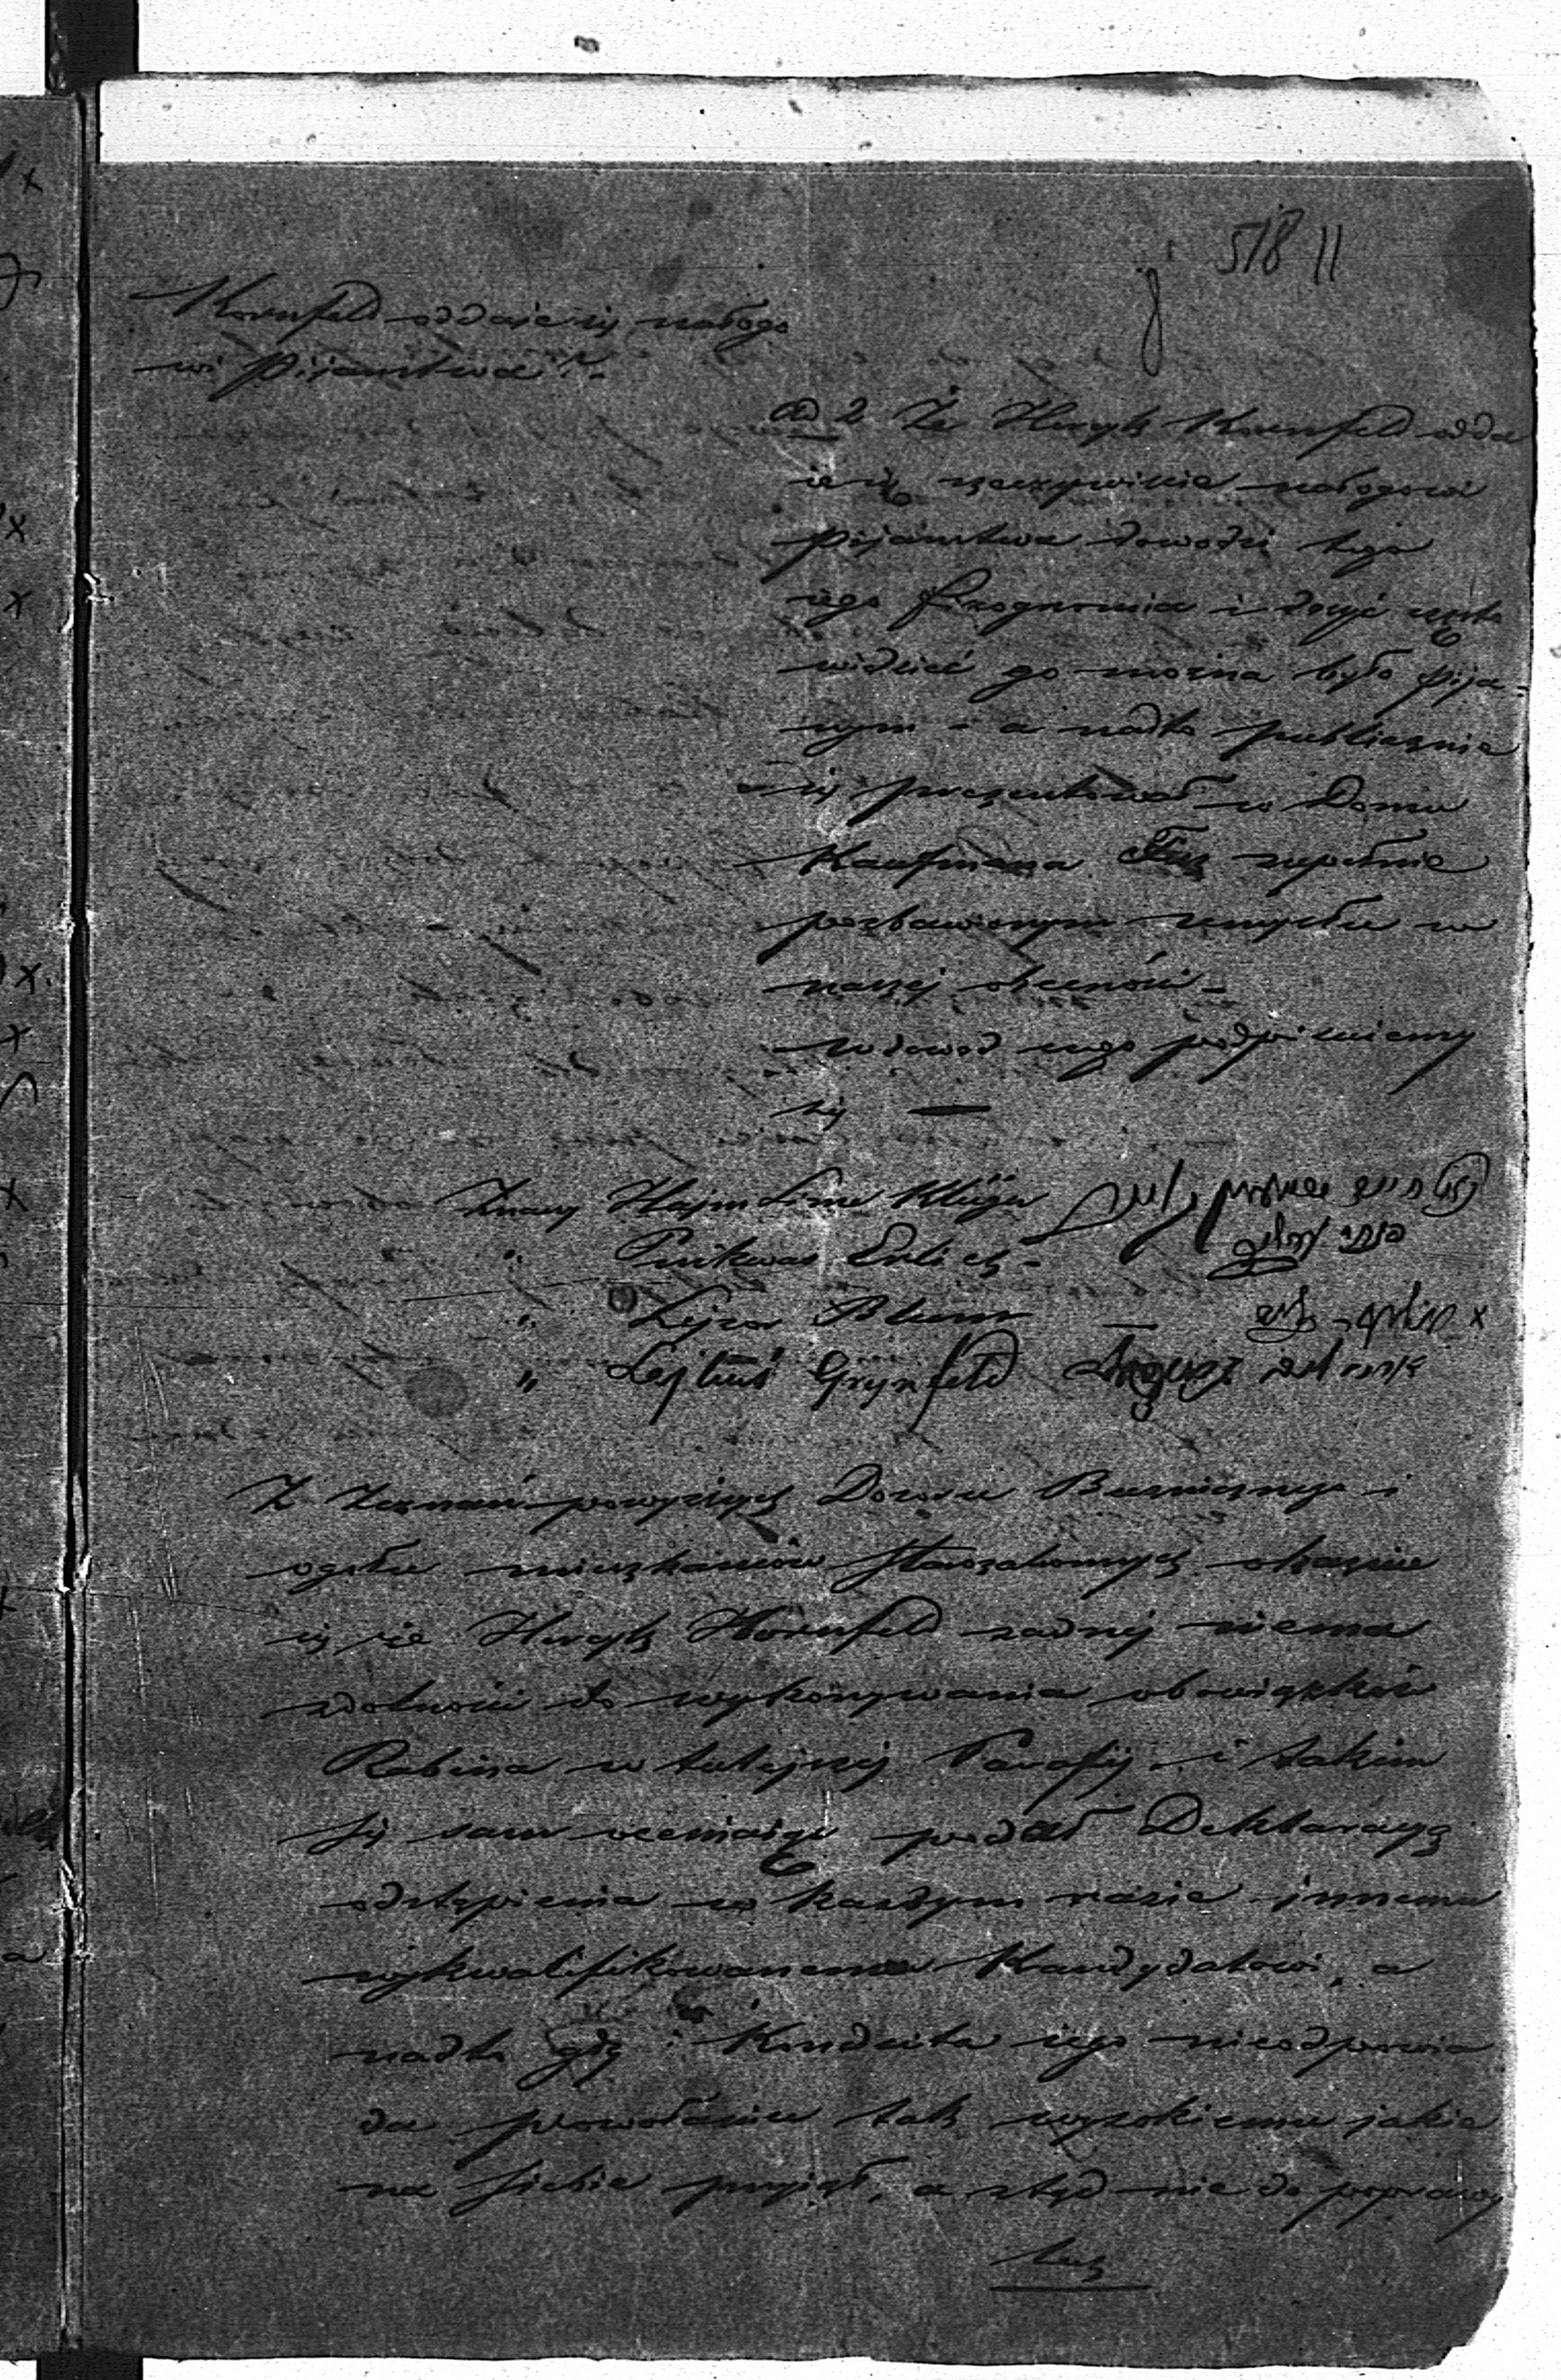 518 11
Kornfeld oddaie się nałogo
wi pijaństwa?.
ad 2 Że Hersyk Kornfeld odda
ie się rzeczywiście nałogowi
pijaństwa dowodzi tego
iego fizognomia i dosyć często
widzieć go można było pija-
nym - a nadto publicznie
się prezentował w Domu
Kaufmana zupełnie
pozbawionym umysłu w
naszej obecności -
w dowód czego podpisuiemy
się —
Znany Hajm
" Pinkwas Erlich -
" Lejzor Blum —
" Lejbuś Grynfeld
Z Zeznań powyższych Dozoru Bużniczego i
ogółu mieszkańców Starozakonnych okazuie
się że Hersyk Kornfeld żadnej niema
zdolności do wykonywania obowiązków
Rabina w tutejszej Parafij - i takim
się sam oceniając podał Deklaracyą
odstąpienia w każdym razie innemu
wykwalifikowanemu Kandydatowi, a
nadto gdy i Konduita iego nieodpowia
da powołaniu tak wysokiemu jakie
na siebie przyjął, a ztąd nie do poprawy